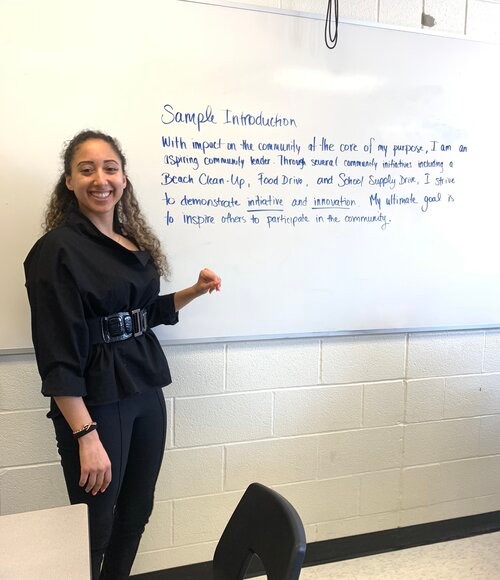 Sample Introduction
With impact on the community at the core of my purpose, I am an
aspiring community leader. Through several community initiatives including a
Beach Clean-Up, Food Drive, and School Supply Drive, I strive
to demonstrate initiative and innovation. My ultimate goal is
to inspire others to participate in the community.